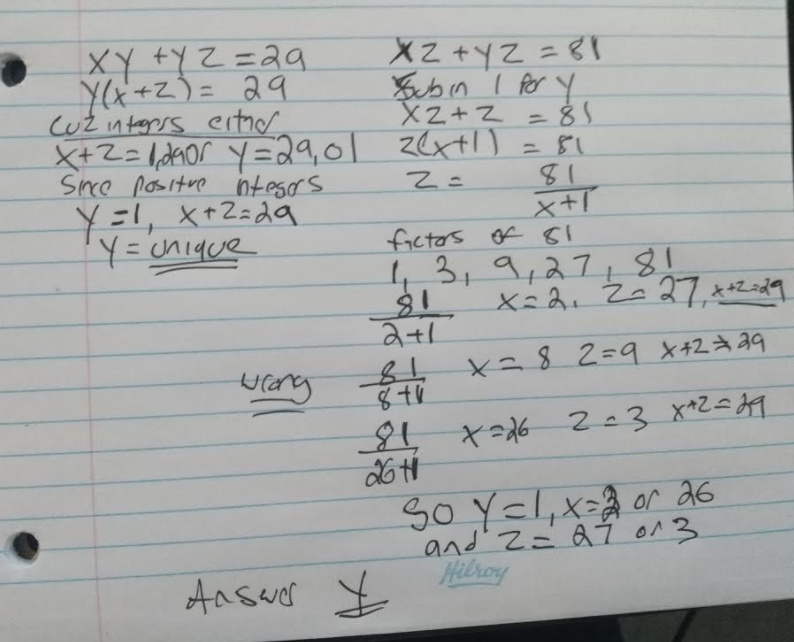 XY + YZ = 29
Y(X+Z) = 29
Cuz integers either
X+Z=1,29 or Y=29,01
Since positive integers
Y=1, X+Z=29
Y = unique
XZ + YZ = 81
Sub in 1 for Y
XZ + Z = 81
Z(X+1) = 81
Z = 81/X+1
factors of 81
1, 3, 9, 27, 81
81/2+1 X=2, Z=27, X+Z=29
wrong 81/8+1 X=8 Z=9 X+Z≠29
81/26+1 X=26 Z=3 X+Z=29
So Y=1, X=2 or 26
and Z=27 or 3
Hilroy
Answer Y